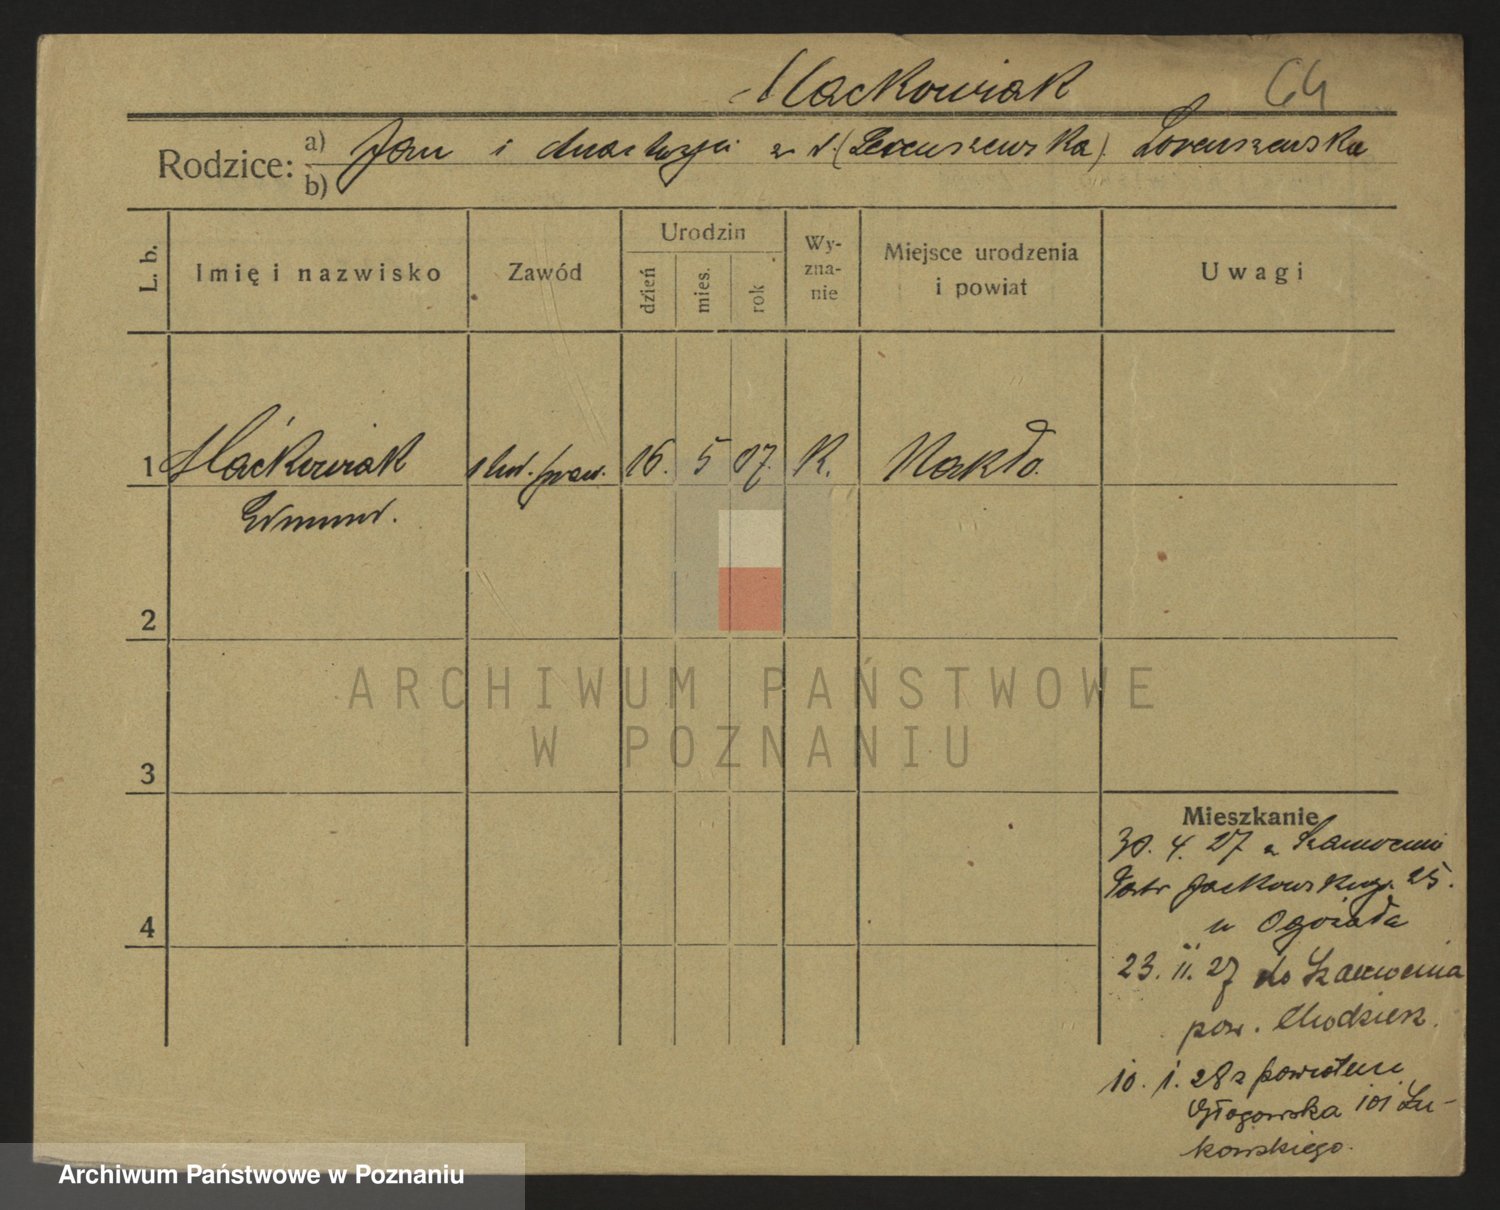 Maćkowiak 64
Rodzice: a) Jan i Anastazja z d. (Leruszewska) Loruszewska
b)
L. b. Imię i nazwisko Zawód Urodzin Wy-zna-nie Miejsce urodzenia i powiat Uwagi
dzień mies. rok
1 Maćkowiak 16. 5 07. K. Nakło.
Edmund.
2
3
4
Mieszkanie
30. 4. 27 z Szamocina
Jackowskiego 25.
u Ogórka
23. 11. 27 do Szamocina
pow. Chodzież.
10. 1. 28 z powrotem
Głogowska 101 Łu-
kowskiego.
ARCHIWUM PAŃSTWOWE
W POZNANIU
Archiwum Państwowe w Poznaniu